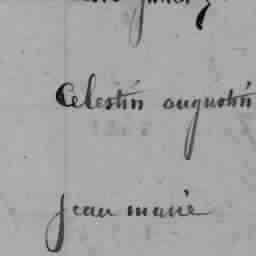 Celestin augustin
jean marie